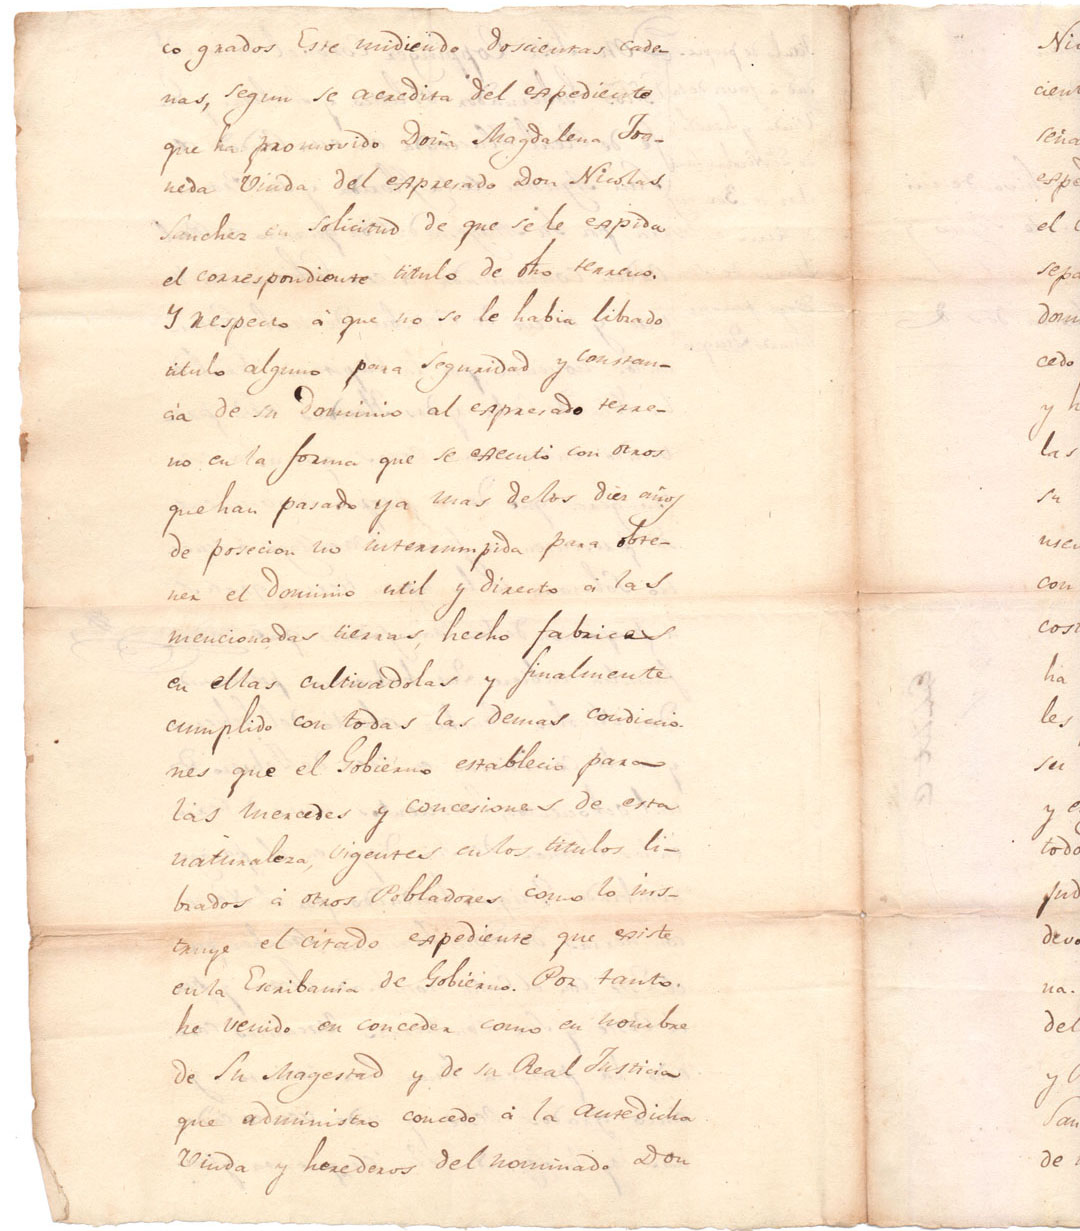 co grados Este midiendo doscientas cade-
nas, segun se acredita del expediente
que ha promovido Doña Magdalena Joa-
neda Viuda del expresado Don Nicolas
Sanchez en solicitud de que se le expida
el correspondiente titulo de dho terreno.
Y respecto á que no se le habia librado
titulo alguno para seguridad y constan-
cia de su Dominio al expresado terre-
no en la forma que se executó con otros
que han pasado ya mas de los diez años
de posecion no interrumpida para obte-
ner el Dominio util y directo á las
mencionadas tierras, hecho fabricas
en ellas cultivadolas y finalmente
cumplido con todas las demas condicio-
nes que el Gobierno establecio para
las mercedes y concesiones de esta
naturaleza, vigentes en los titulos li-
brados á otros Pobladores como lo ins-
truye el citado expediente que existe
en la Escribania de Gobierno. Por tanto.
he venido en conceder como en nombre
de Su Magestad y de su Real Justicia
que administro concedo á la antedicha
Viuda y herederos del nominado Don
Nic
cient
seña
espe
el
sepa
domi
cedo
y h
las
su
usen
con
cost
ha
les
su
y e
todo
jud
devo
na.
del
y
San
de